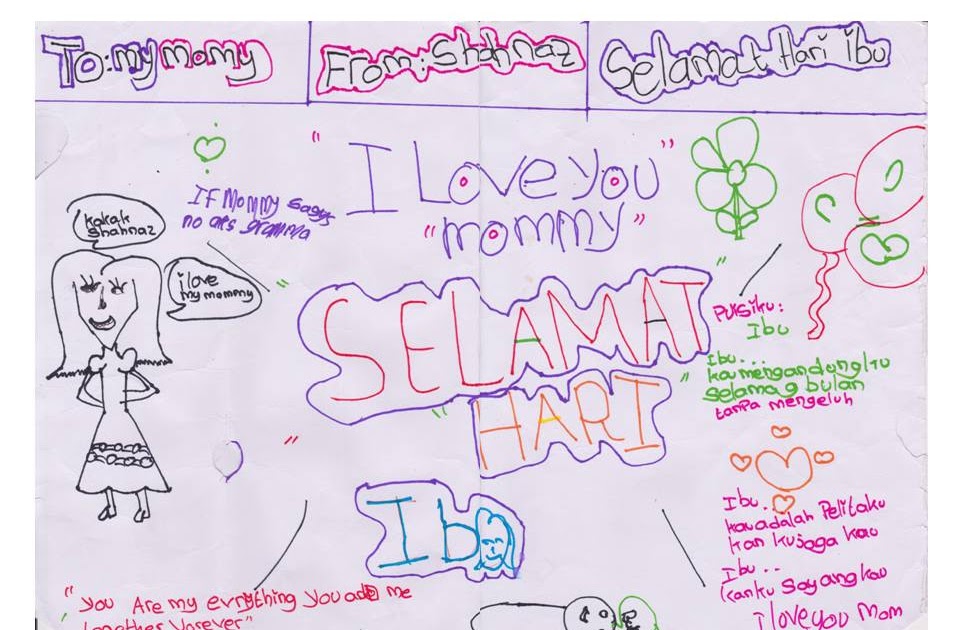 To: my momy
From: Shahnaz
Selamat Hari ibu
"I Love you"
"mommy"
IF Mommy
no
kakak
shahnaz
i love
my mommy
SELAMAT
HARI
Ib
Puisiku:
Ibu
Ibu...
kau mengandungku
selama 9 bulan
tanpa mengeluh
Ibu..
kau adalah Pelitaku
kan kujaga kau
Ibu..
kanku Sayang kau
i love you Mom
"you Are my evrything You me